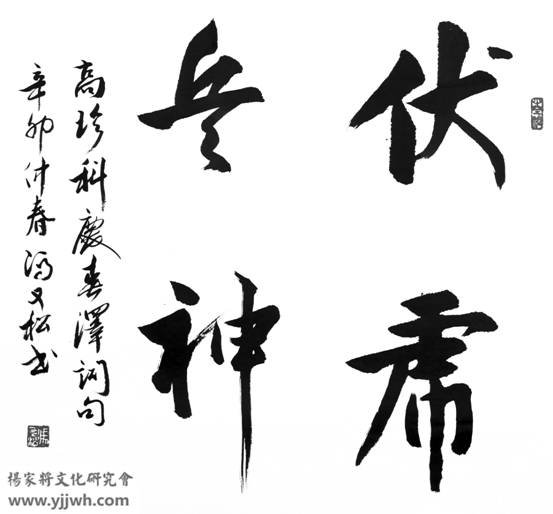 伏虎
兵神
高珍科慶春澤词句
辛卯仲春冯又松书
楊家將文化研究會
www.yjjwh.com